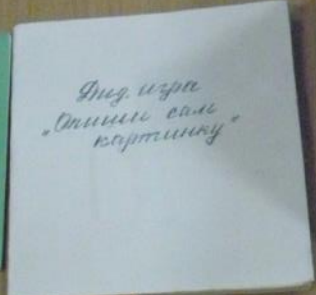 Дид. игра
„Опиши сам
картинку"